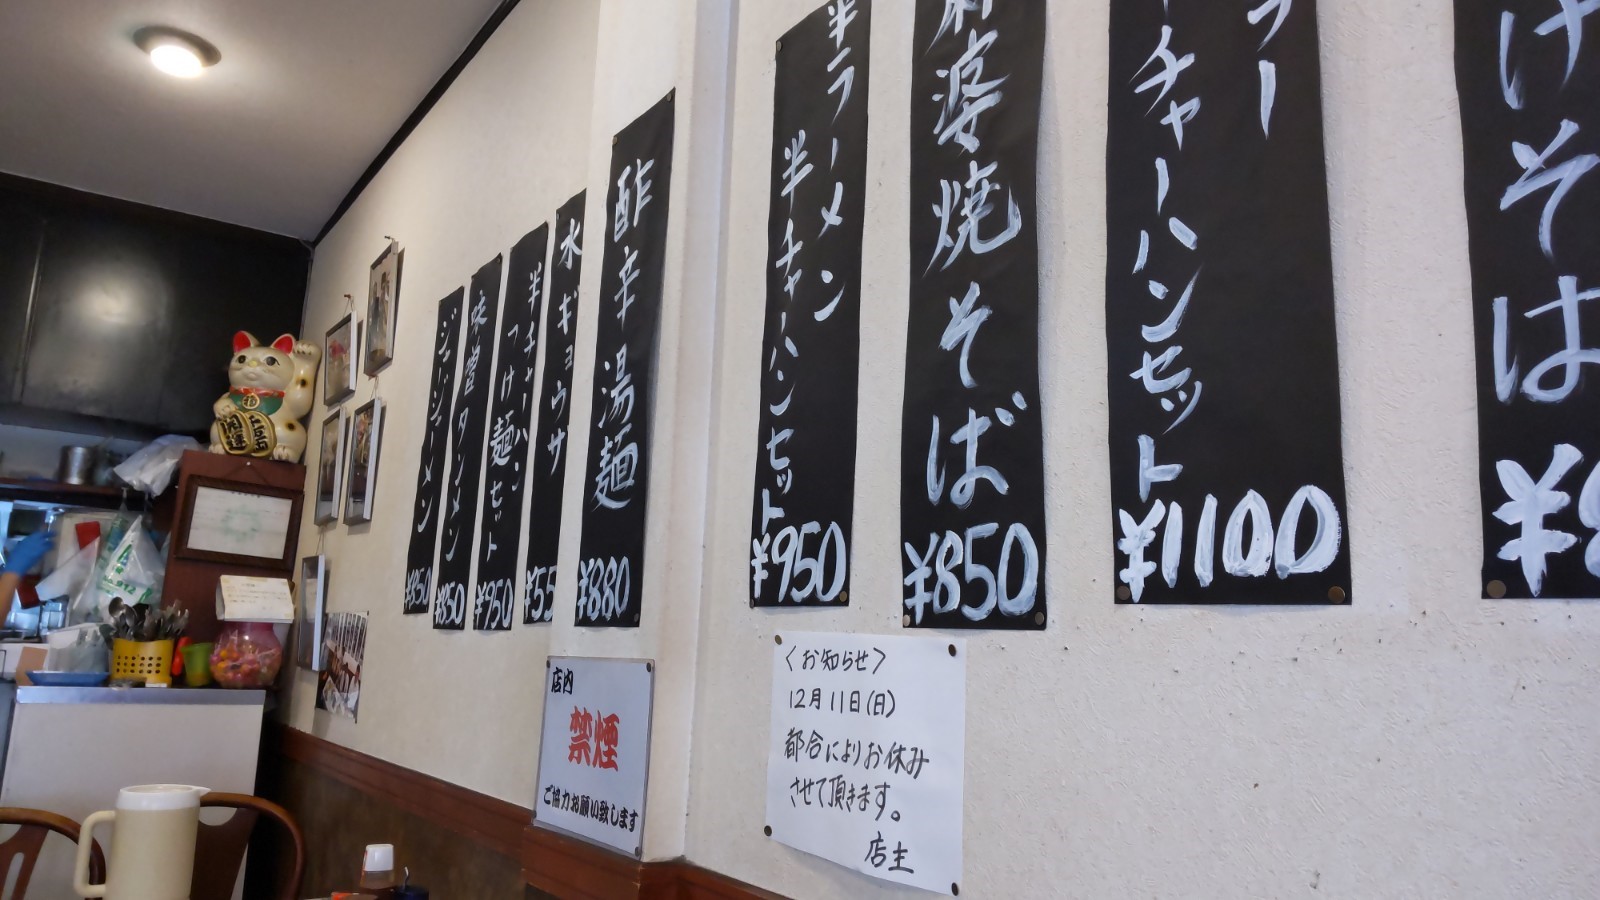 ジャージャーメン
¥850
味噌タンメン
¥850
半チャーハン
つけ麺セット
¥950
水ギョウザ
¥55
酢辛湯麺
¥880
半ラーメン
半チャーハンセット
¥950
麻婆焼そば
¥850
ー
チャーハンセット
¥1100
けそば
店内
禁煙
ご協力お願い致します
〈お知らせ〉
12月11日(日)
都合によりお休み
させて頂きます。
店主